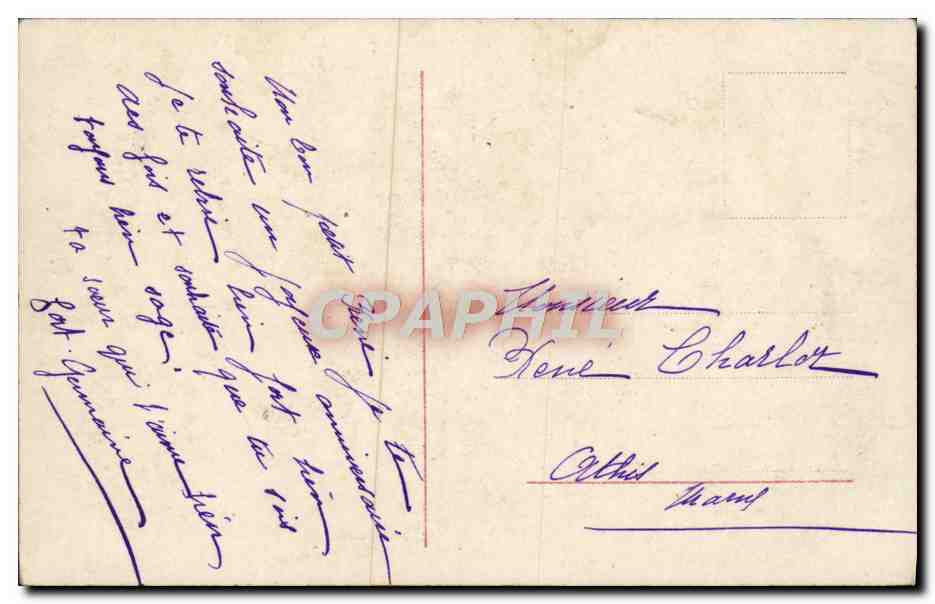 Mon bon petit René je te
souhaite un joyeux anniversaire
je te bien fort bien
des fois et souhaité que tu sois
toujours bien sage.
ta soeur qui t'aime bien
fort Germaine
CPAPHIL
Monsieur
René Charlot
Athis
Marne